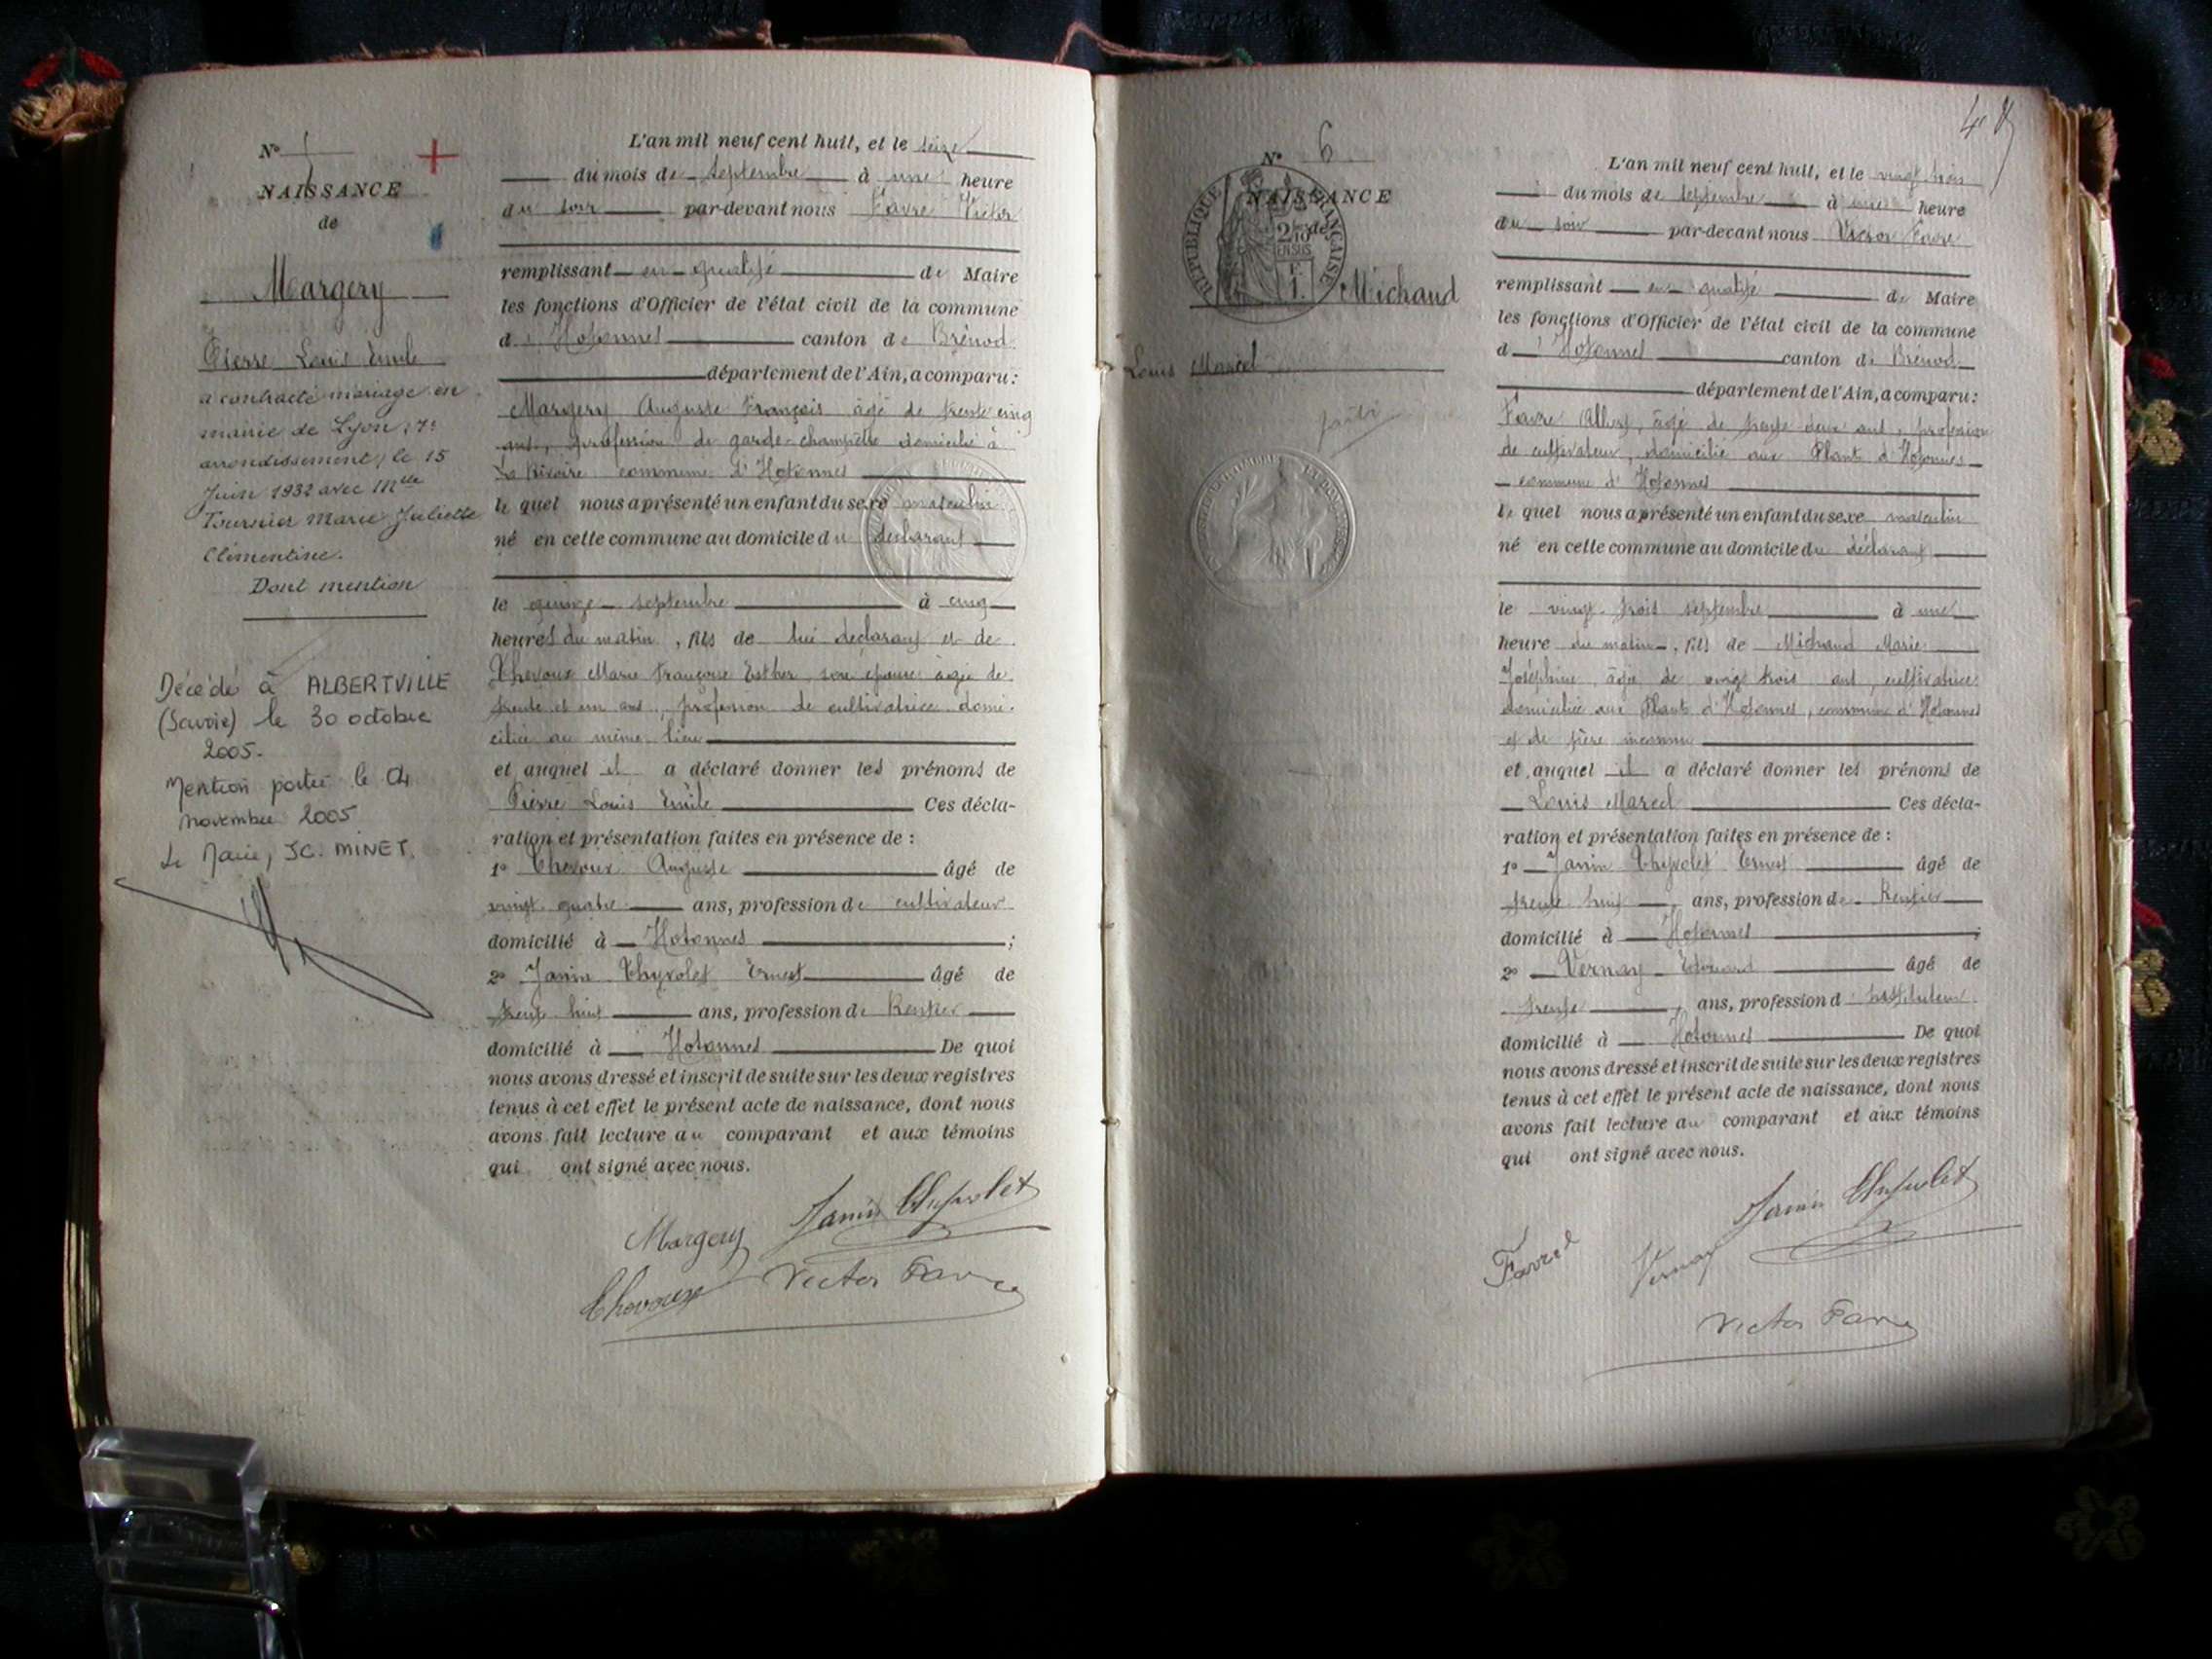 N°
NAISSANCE
de
Margery
Pierre Louis Emile
a contracté mariage en
mairie de Lyon, 7e
arrondissement, le 15
Juin 1932 avec Mlle
Tournier Marie Juliette
Clémentine.
Dont mention
Décédé à ALBERTVILLE
(Savoie) le 30 octobre
2005.
Mention portée le 04
novembre 2005
Le Maire, JC. MINET.
L'an mil neuf cent huit, et le seize
du mois de septembre à une heure
du soir par-devant nous Favre Victor
remplissant en qualité de Maire
les fonctions d'Officier de l'état civil de la commune
d' Hotonnes canton de Brénod
département de l'Ain, a comparu :
Margery Auguste François âgé de trente cinq
ans, profession de garde-champêtre domicilié à
La Rivoire commune d'Hotonnes
le quel nous a présenté un enfant du sexe masculin
né en cette commune au domicile du déclarant
le quinze septembre à cinq
heures du matin, fils de lui déclarant et de
Chevoux Marie Françoise Esther, son épouse âgée de
trente et un ans, profession de cultivatrice domi-
ciliée au même lieu
et auquel il a déclaré donner les prénoms de
Pierre Louis Emile Ces décla-
ration et présentation faites en présence de :
1° Chevoux Auguste âgé de
vingt quatre ans, profession de cultivateur
domicilié à Hotonnes ;
2° Janin Thyvolet Ernest âgé de
trente huit ans, profession de Rentier
domicilié à Hotonnes De quoi
nous avons dressé et inscrit de suite sur les deux registres
tenus à cet effet le présent acte de naissance, dont nous
avons fait lecture au comparant et aux témoins
qui ont signé avec nous.
Margery Janin Thyvolet
Chevoux Victor Favre
N° 6
NAISSANCE
de
RÉPUBLIQUE FRANÇAISE
2/10
EN SUS
Michaud
Louis Marcel
L'an mil neuf cent huit, et le vingt trois
du mois de septembre à une heure
du soir par-devant nous Victor Favre
remplissant en qualité de Maire
les fonctions d'Officier de l'état civil de la commune
d' Hotonnes canton de Brénod
département de l'Ain, a comparu :
Favre Albert, âgé de trente deux ans, profession
de cultivateur, domicilié aux Plans d'Hotonnes
commune d'Hotonnes
le quel nous a présenté un enfant du sexe masculin
né en cette commune au domicile du déclarant
le vingt trois septembre à une
heure du matin, fils de Michaud Marie
Joséphine, âgée de vingt trois ans, cultivatrice
domiciliée aux Plans d'Hotonnes, commune d'Hotonnes
et de père inconnu
et auquel il a déclaré donner les prénoms de
Louis Marcel Ces décla-
ration et présentation faites en présence de :
1° Janin Thyvolet Ernest âgé de
trente huit ans, profession de Rentier
domicilié à Hotonnes ;
2° Vernay Edouard âgé de
trente ans, profession d' instituteur
domicilié à Hotonnes De quoi
nous avons dressé et inscrit de suite sur les deux registres
tenus à cet effet le présent acte de naissance, dont nous
avons fait lecture au comparant et aux témoins
qui ont signé avec nous.
Janin Thyvolet
Favre Vernay
Victor Favre